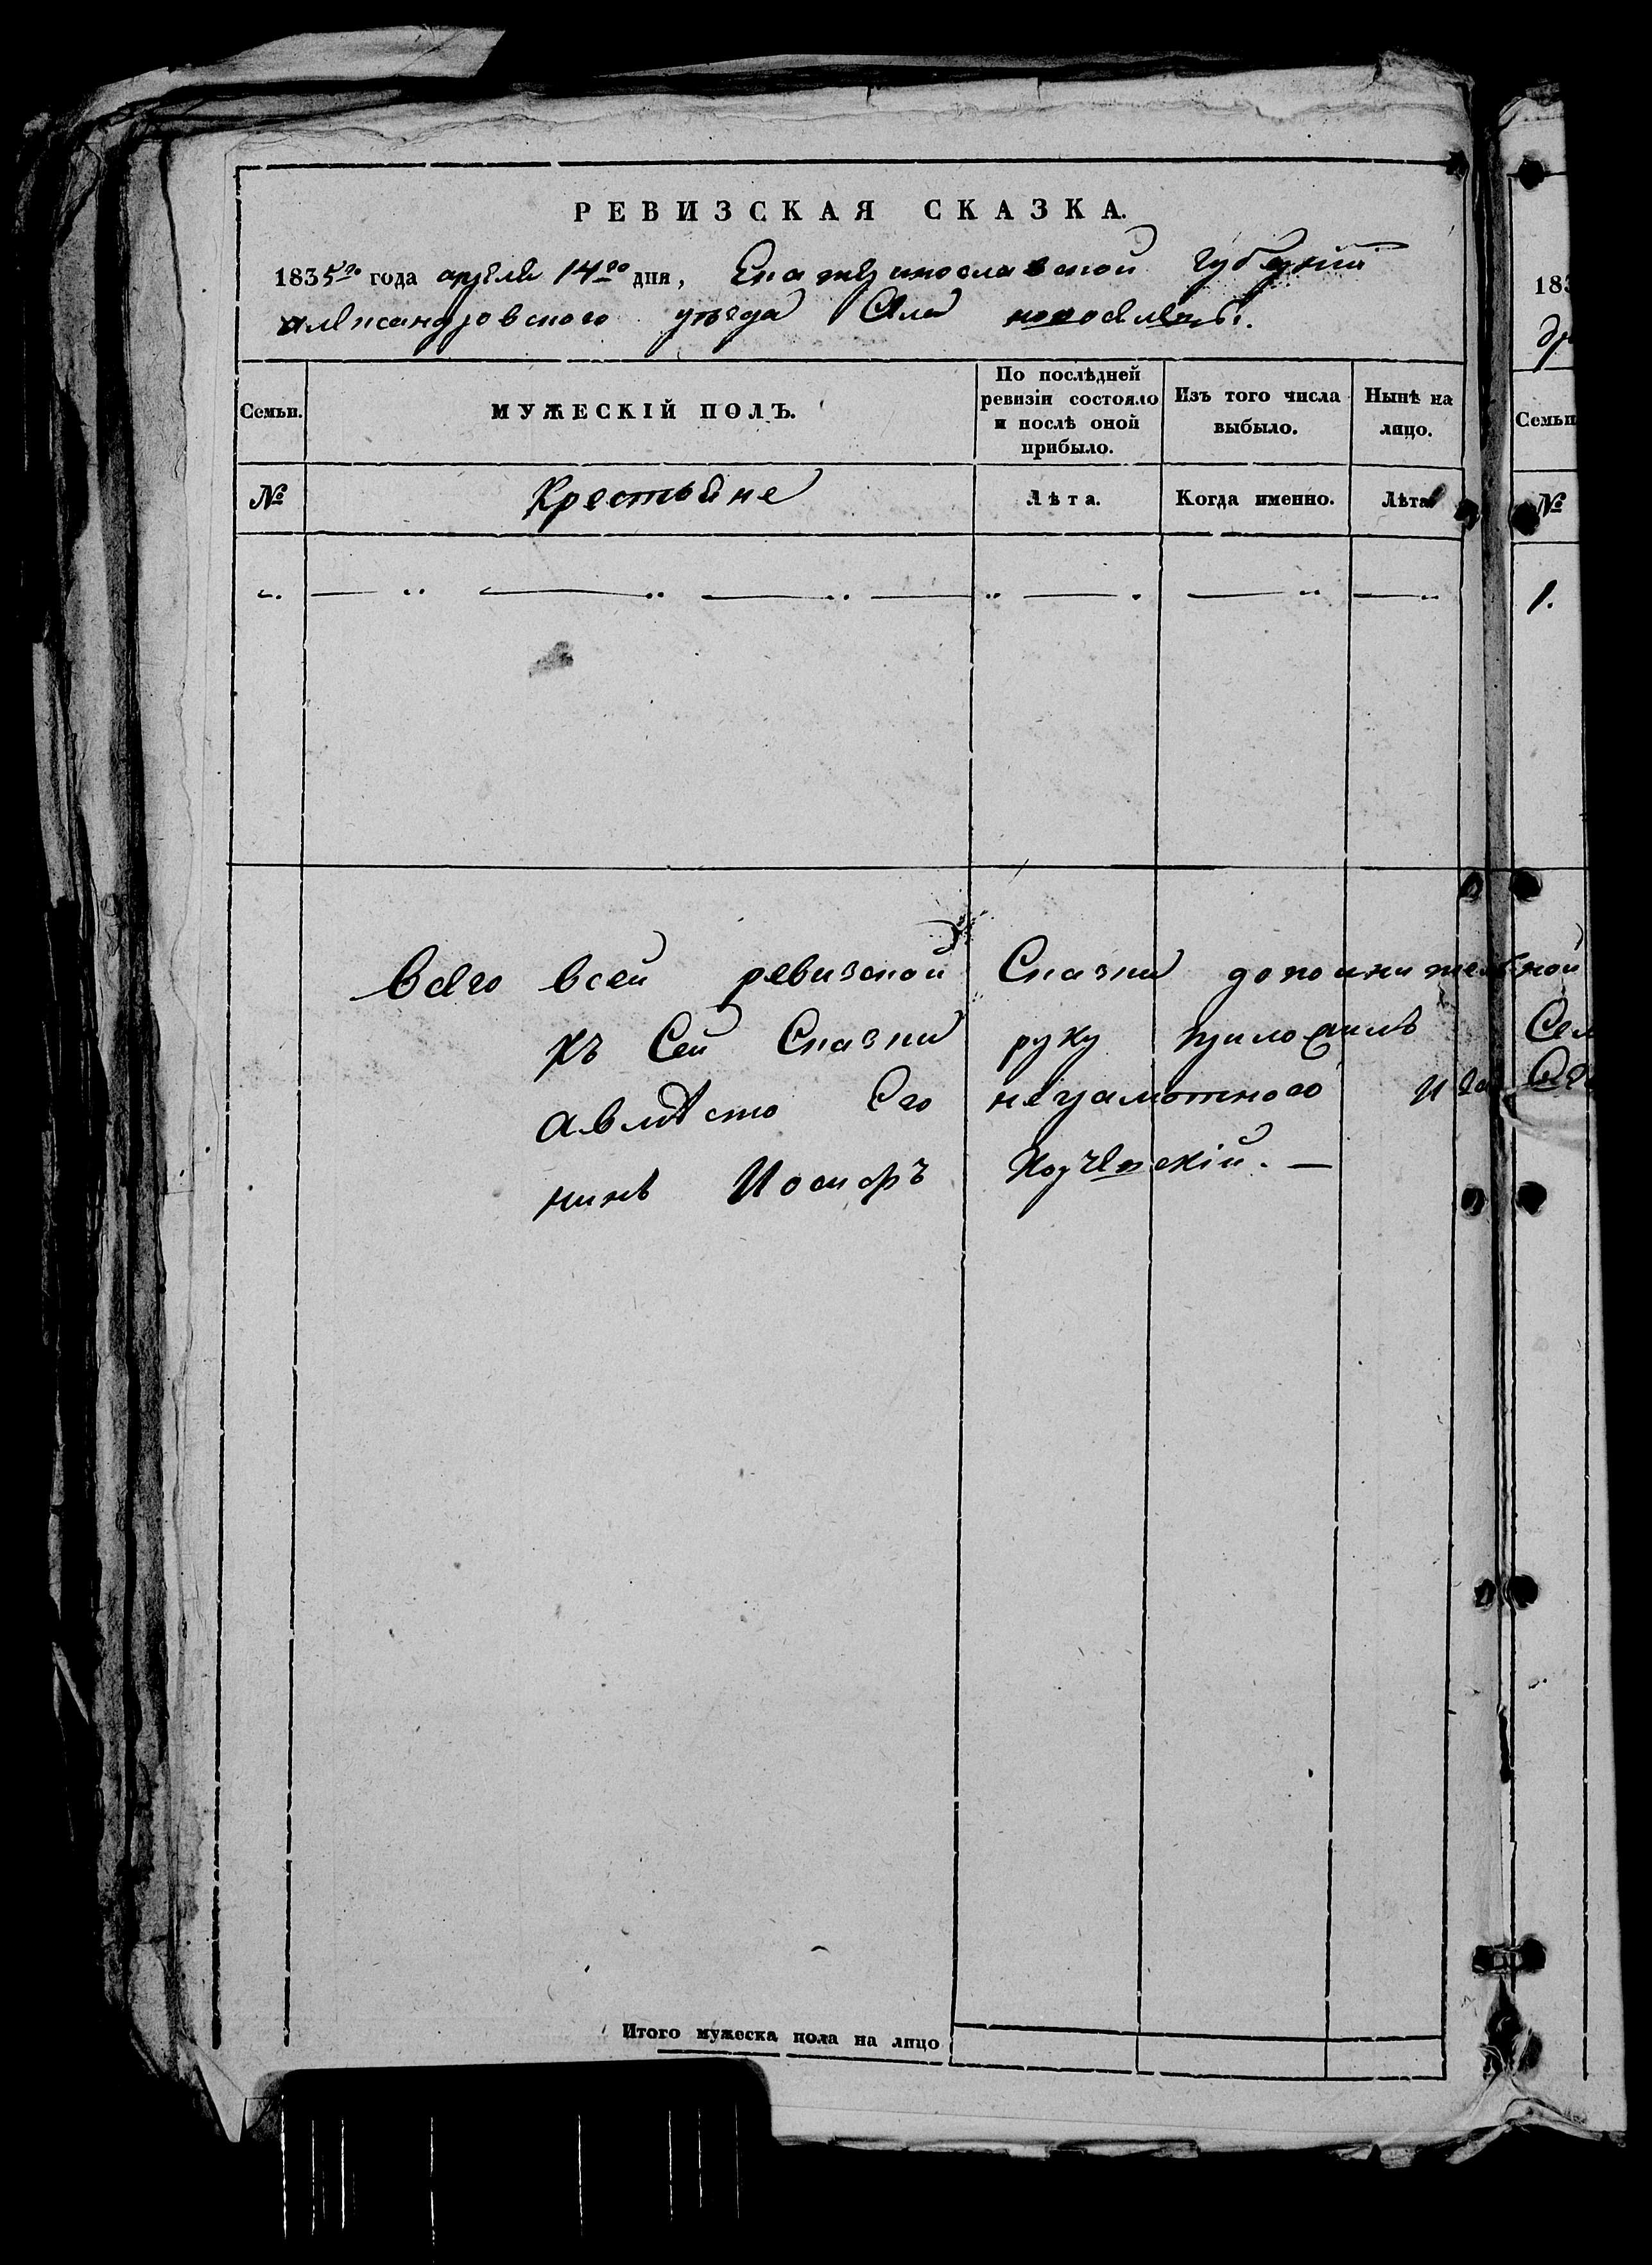 РЕВИЗСКАЯ СКАЗКА.
1835го года апреля 14го дня, Екатеринославской губернии
александровского уѣзда Села
Семьи.
МУЖЕСКІЙ ПОЛЪ.
По послѣдней
ревизіи состояло
и послѣ оной
прибыло.
Изъ того числа
выбыло.
Нынѣ на
лицо.
№
Крестьяне
Лѣта.
Когда именно.
Лѣта
Всего всей ревизской Сказки дополнительной
Къ Сей Сказки руку приложилъ
авмѣсто Его неграмотного
нинъ Иосифъ
Итого мужеска пола на лицо
183
Семьи
№
1.